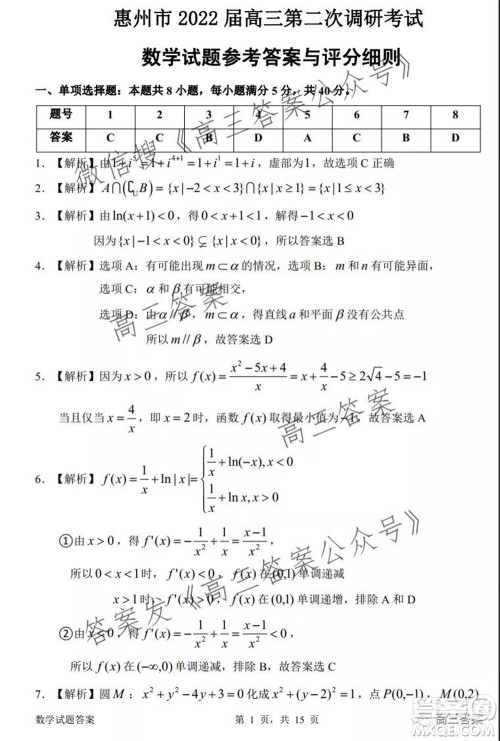 惠州市 2022 届高三第二次调研考试
数学试题参考答案与评分细则
一、单项选择题：本题共 8 小题，每小题满分 5 分，共 40 分。
题号 1 2 3 4 5 6 7 8
答案 C C B D A C B D
1. 【解析】由1+i⁵=1+i⁴⁺¹=1+i¹=1+i，虚部为1，故选项 C 正确
2. 【解析】A∩(∁ᵤB)={x|-2<x<3}∩{x|x≥1}={x|1≤x<3}
3. 【解析】由ln(x+1)<0，得0<x+1<1，解得-1<x<0
因为{x|-1<x<0}⫋{x|x<0}，所以答案选 B
4. 【解析】选项 A：有可能出现 m⊂α 的情况，选项 B：m 和 n 有可能异面，
选项 C：α 和 β 有可能相交，
选项 D：由α//β，m⊂α，得直线 m 和平面 β 没有公共点
所以 m//β，故答案选 D
5. 【解析】因为 x>0，所以 f(x)=(x²-5x+4)/x=x+4/x-5≥2√4-5=-1
当且仅当 x=4/x，即 x=2 时，函数 f(x) 取得最小值为-1，故答案选 A
6. 【解析】f(x)=1/x+ln|x|={1/x+ln(-x),x<0
1/x+ln x,x>0
①由 x>0，得 f'(x)=-1/x²+1/x=(x-1)/x²，
所以 0<x<1 时，f'(x)<0，f(x)在(0,1)单调递减
x>1 时，f'(x)>0，f(x)在(0,1)单调递增，排除 A 和 D
②由 x<0，得 f'(x)=-1/x²+1/x=(x-1)/x²<0，
所以 f(x)在(-∞,0)单调递减，排除 B，故答案选 C
7. 【解析】圆 M：x²+y²-4y+3=0 化成 x²+(y-2)²=1，点 P(0,-1)，M(0,2)
数学试题答案 第 1 页，共 15 页 高三答案
微信搜《高三答案公众号》
高三答案
高三答案
答案发《高三答案公众号》